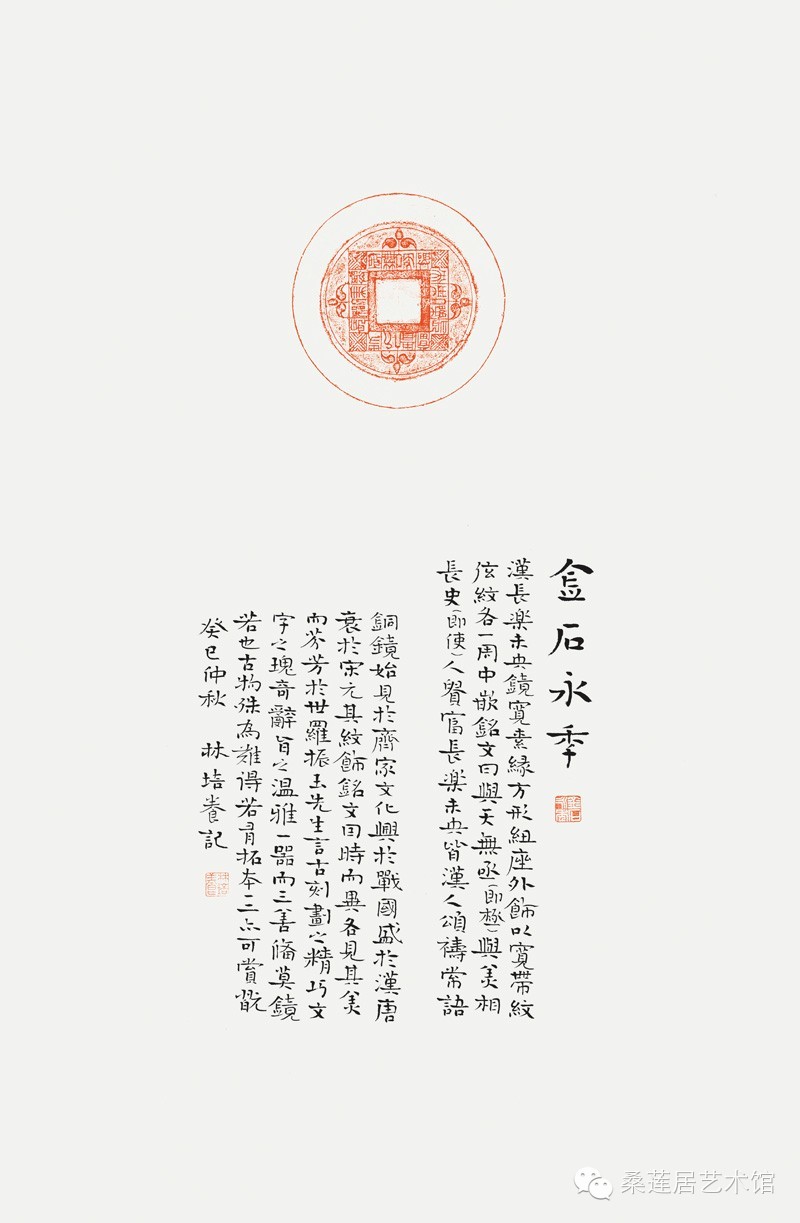 金石永秊
漢長樂未央鏡寬素緣方形紐座外飾以寬帶紋
弦紋各一周中嵌銘文曰與天無亟(即極)與美相
長史(即使)人貴富長樂未央皆漢人頌禱常語
銅鏡始見於齊家文化興於戰國盛於漢唐
衰於宋元其紋飾銘文因時而異各見其美
而芬芳於世羅振玉先生言古刻劃之精巧文
字之瑰奇辭旨之溫雅一器而三善備莫鏡
若也古物殊為難得若有拓本一二亦可賞翫
癸巳仲秋 林培養記
桑莲居艺术馆